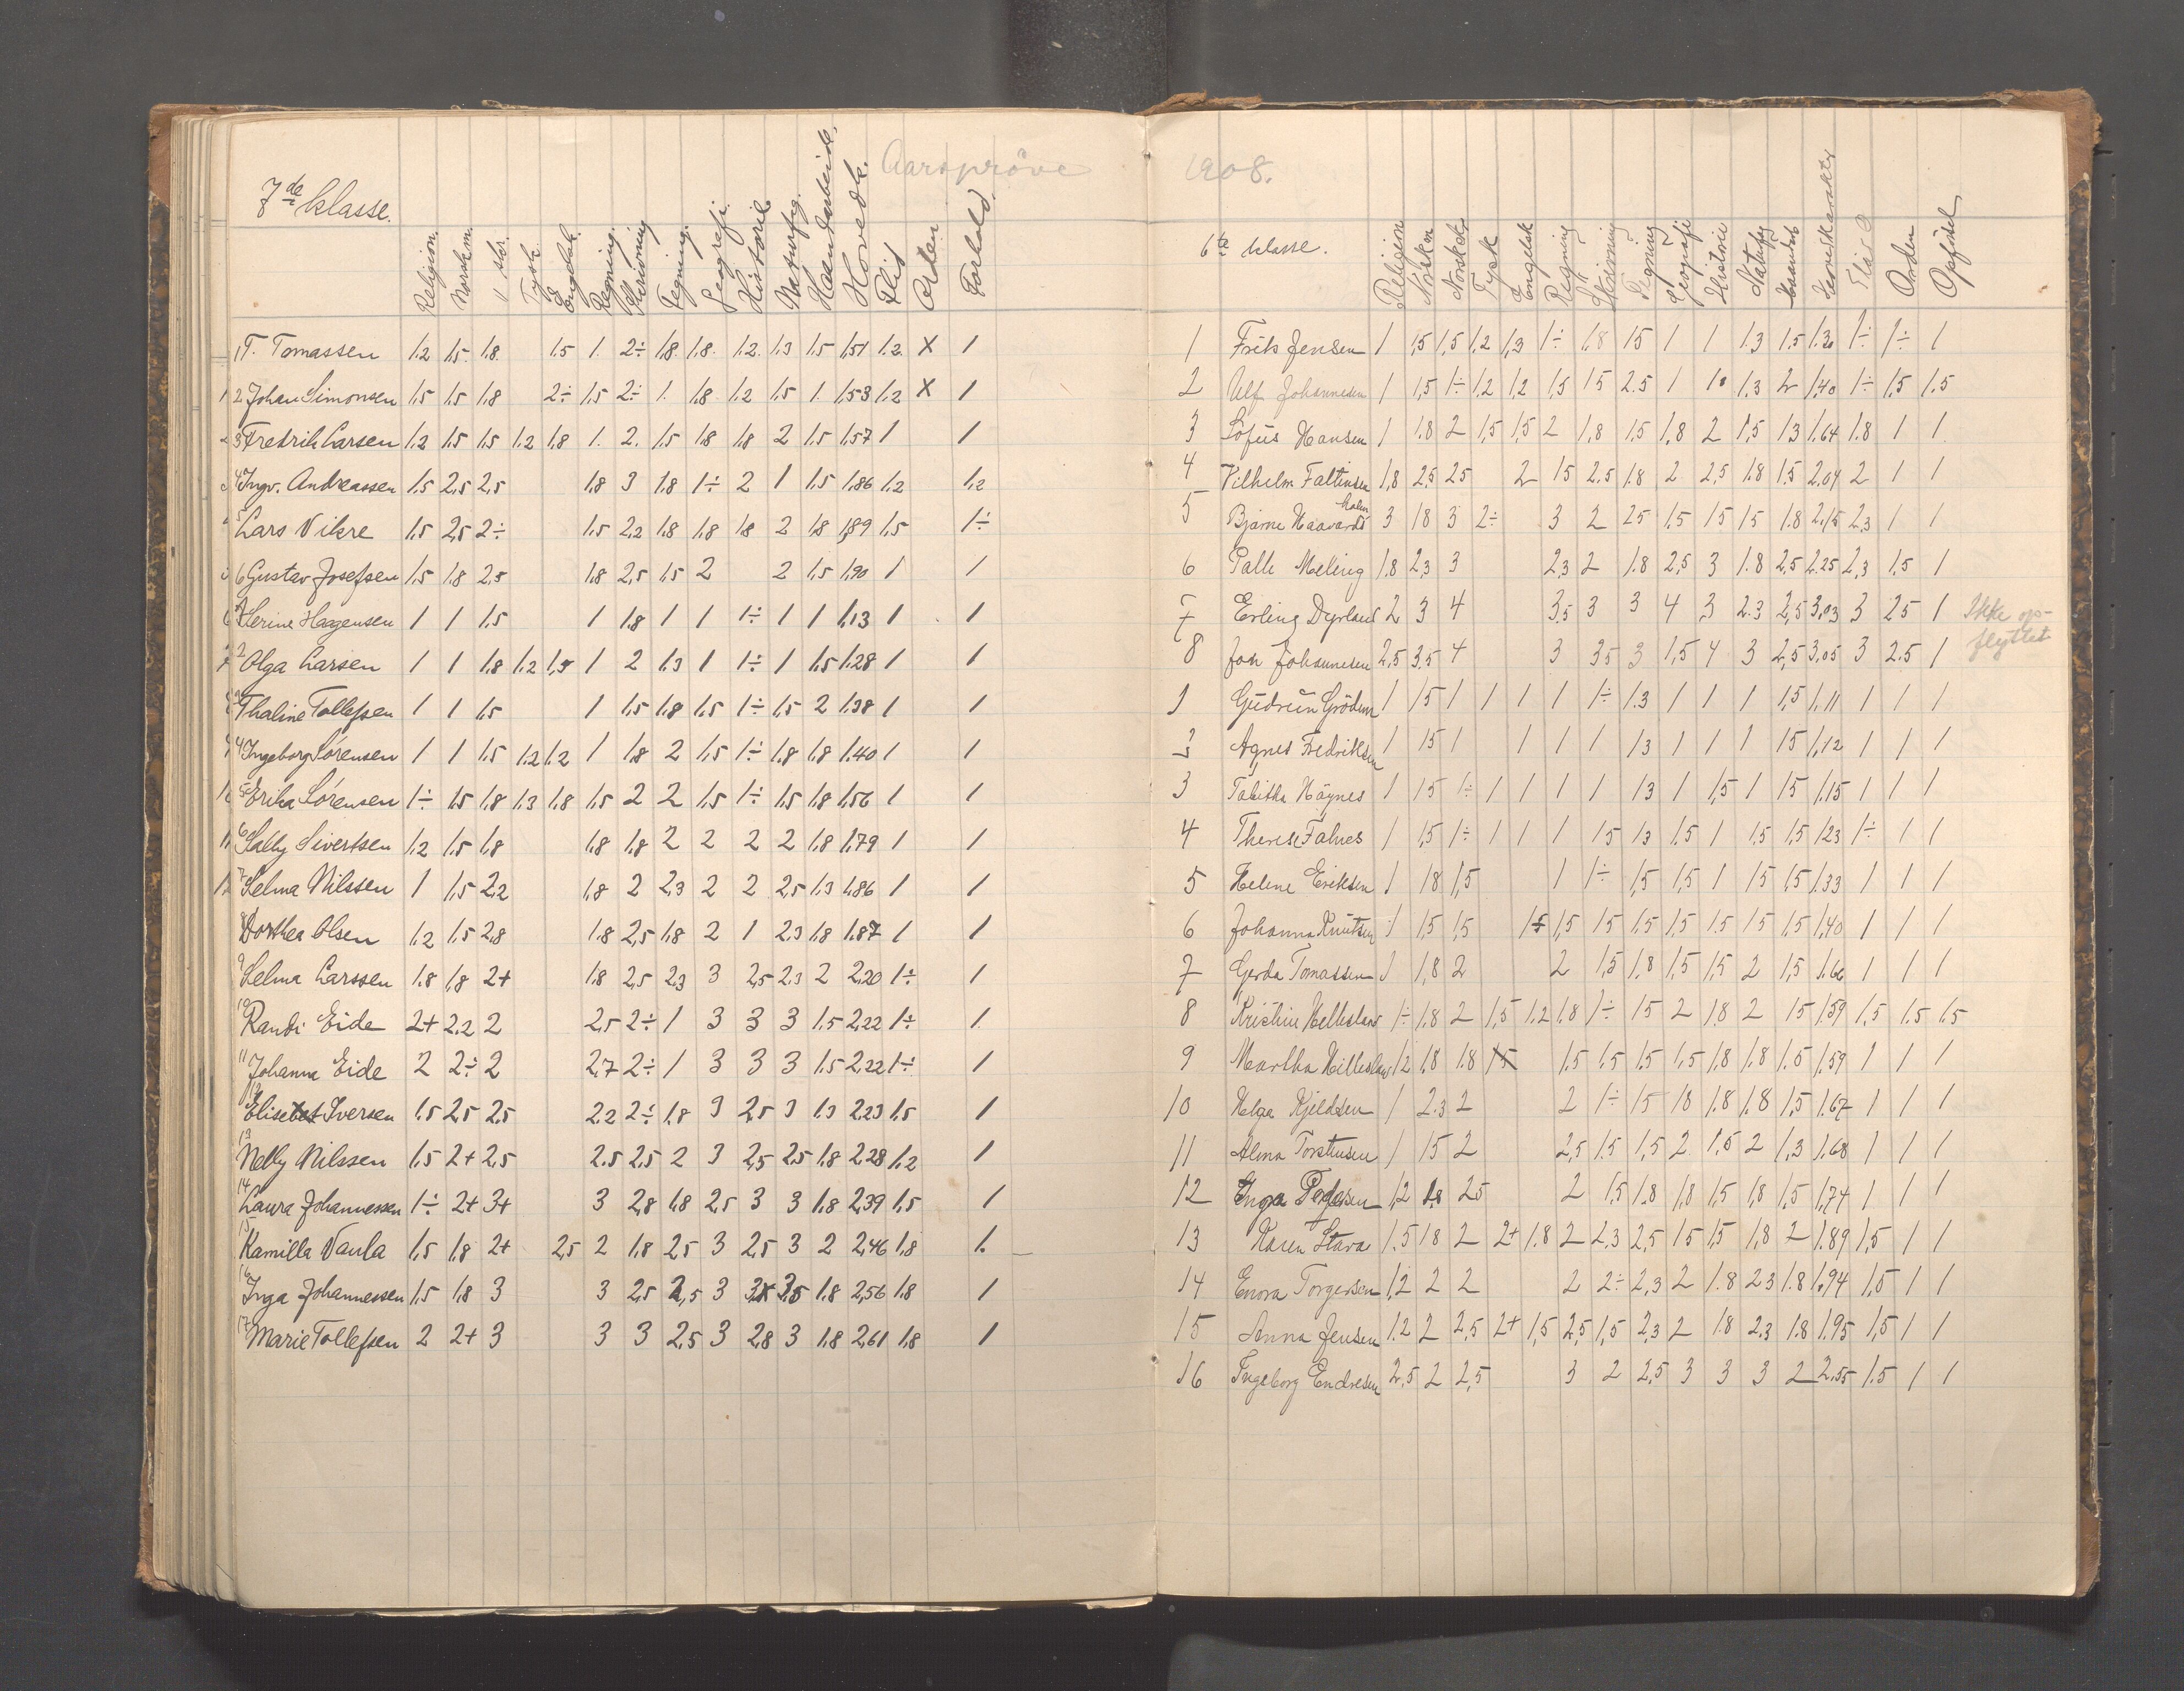 Aarspröve 1908.
7de klasse.
Religion. Norsk m. " skr. Tysk Engelsk. Regning. Skrivning Tegning. Geografi. Historie Naturfag. Haandarbeide. Hovedk. Flid Orden Forhold.
1 T. Tomassen 1.2 1.5 1.8 1.5 1. 2÷ 1.8 1.8 1.2 1.3 1.5 1,51 1.2 X 1
1 2 Johan Simonsen 1.5 1.5 1.8 2÷ 1.5 2÷ 1. 1.8 1.2 1.5 1. 1,53 1.2 X 1
2 3 Fredrik Larsen 1.2 1.5 1.5 1.2 1.8 1. 2. 1.5 1.8 1.8 2 1.5 1,57 1 1
3 4 Ingv. Andreassen 1.5 2,5 2,5 1.8 3 1.8 1÷ 2 1 1.5 1,86 1.2 1.2
Lars Vikre 1.5 2,5 2÷ 1.5 2,2 1.8 1.8 1.8 2 1.8 1,89 1.5 1÷
6 Gustav Josefsen 1.5 1.8 2,5 1.8 2,5 1.5 2 2 1.5 1,90 1 1
Serine Haagensen 1 1 1.5 1 1.8 1 1 1÷ 1 1 1,13 1 1
2 Olga Larsen 1 1 1.8 1.2 1,5 1 2 1.3 1 1÷ 1 1.5 1,28 1 1
3 Thaline Tollefsen 1 1 1.5 1 1.5 1.8 1.5 1÷ 1.5 2 1,38 1 1
4 Ingeborg Sørensen 1 1 1.5 1.2 1.2 1 1.8 2 1.5 1÷ 1.8 1.8 1,40 1 1
5 Erika Sørensen 1÷ 1.5 1.8 1.3 1.8 1.5 2 2 1.5 1÷ 1.5 1.8 1,56 1 1
11 6 Sally Sivertsen 1.2 1.5 1.8 1.8 1.8 2 2 2 2 1.8 1,79 1 1
12 7 Selma Nilssen 1 1.5 2,2 1.8 2 2,3 2 2 2,5 1.3 1,86 1 1
8 Dorthea Olsen 1.2 1.5 2,8 1.8 2,5 1.8 2 1 2,3 1.8 1,87 1 1
9 Selma Larssen 1.8 1.8 2+ 1.8 2,5 2,3 3 2,5 2.3 2 2,20 1÷ 1
10 Randi Eide 2+ 2.2 2 2,5 2÷ 1 3 3 3 1.5 2,22 1÷ 1
11 Johanna Eide 2 2÷ 2 2,7 2÷ 1 3 3 3 1.5 2,22 1÷ 1
12 Elisebet Iversen 1.5 2,5 2,5 2,2 2÷ 1,8 3 2,5 3 1.3 2,23 1.5 1
13 Nelly Nilssen 1.5 2+ 2,5 2.5 2,5 2 3 2,5 2,5 1.8 2,28 1.2 1
14 Laura Johannessen 1÷ 2+ 3+ 3 2,8 1.8 2,5 3 3 1.8 2,39 1.5 1
15 Kamilla Vaula 1.5 1.8 2+ 2,5 2 1.8 2,5 3 2,5 3 2 2,46 1.8 1.
16 Inga Johannessen 1.5 1.8 3 3 2,5 2,5 3 3 3,5 1.8 2,56 1.8 1
17 Marie Tollefsen 2 2+ 3 3 3 2,5 3 2,8 3 1.8 2,61 1.8 1
6te klasse.
Religion Norsk m Norsk sk Tysk Engelsk Regning Skrivning Tegning Geografi Historie Naturfag Haandarb Hovedkarakter Flid Orden Opførsel
1 Frits Jensen 1 1,5 1,5 1,2 1,3 1÷ 1,8 1,5 1 1 1.3 1.5 1.30 1÷ 1÷ 1
2 Ulf Johannesen 1 1,5 1÷ 1,2 1,2 1,5 1,5 2.5 1 1 1,3 2 1,40 1÷ 1,5 1.5
3 Sofus Hansen 1 1.8 2 1,5 1,5 2 1,8 1,5 1,8 2 1,5 1,3 1,64 1.8 1 1
4 Vilhelm Faltinsen 1,8 2,5 2,5 2 1,5 2.5 1.8 2 2,5 1.8 1.5 2,04 2 1 1
5 Bjarne Haavardsholm 3 1,8 3 2÷ 3 2 2,5 1,5 1,5 1,5 1.8 2,15 2,3 1 1
6 Palle Meling 1.8 2,3 3 2,3 2 1.8 2,5 3 1.8 2,5 2.25 2,3 1,5 1
7 Erling Dyrland 2 3 4 3,5 3 3 4 3 2.3 2,5 3,03 3 2,5 1 Ikke op-
8 Joh Johannesen 2,5 3.5 4 3 3,5 3 1,5 4 3 2,5 3,05 3 2.5 1 flyttet
1 Gudrun Grödem 1 1,5 1 1 1 1 1÷ 1.3 1 1 1 1,5 1,11 1 1 1
2 Agnes Fredriksen 1 1,5 1 1 1 1 1,3 1 1 1 1,5 1,12 1 1 1
3 Tabitha Høynes 1 1,5 1÷ 1 1 1 1 1,3 1 1,5 1 1,5 1,15 1 1 1
4 Therese Falnes 1 1,5 1÷ 1 1 1 1,5 1,3 1,5 1 1,5 1,5 1,23 1÷ 1 1
5 Helene Eriksen 1 1,8 1,5 1 1÷ 1,5 1,5 1 1,5 1,5 1,33 1 1 1
6 Johanna Knutsen 1 1,5 1,5 1,5 1,5 1,5 1,5 1,5 1.5 1,5 1,5 1,40 1 1 1
7 Gerda Tomassen 1 1,8 2 2 1,5 1,8 1,5 1,5 2 1,5 1.66 1 1 1
8 Kristine Helleland 1÷ 1.8 2 1,5 1.2 1.8 1÷ 1,5 2 1,8 2 1,5 1,59 1,5 1.5 1.5
9 Martha Hilleslan 1,2 1,8 1.8 1,5 1.5 1,5 1,5 1,8 1,8 1.5 1,59 1 1 1
10 Helga Kjeldsen 1 2.3 2 2 1÷ 1,5 1,8 1.8 1.8 1,5 1.67 1 1 1
11 Alma Torstensen 1 1,5 2 2,5 1,5 1,5 2 1,5 2 1,3 1.68 1 1 1
12 Inga Pedersen 1,2 1,8 2,5 2 1,5 1.8 1,8 1,5 1,8 1,5 1,74 1 1 1
13 Karen Stava 1.5 1,8 2 2+ 1.8 2 2.3 2,5 1,5 1,5 1,8 2 1.89 1,5 1 1
14 Enora Torgersen 1,2 2 2 2 2÷ 2,3 2 1.8 2,3 1.8 1,94 1,5 1 1
15 Anna Jensen 1.2 2 2,5 2+ 1,5 2,5 1,5 2,3 2 1.8 2.3 1.8 1.95 1,5 1 1
16 Ingeborg Endresen 2,5 2 2,5 3 2 2,5 3 3 3 2 2.55 1.5 1 1